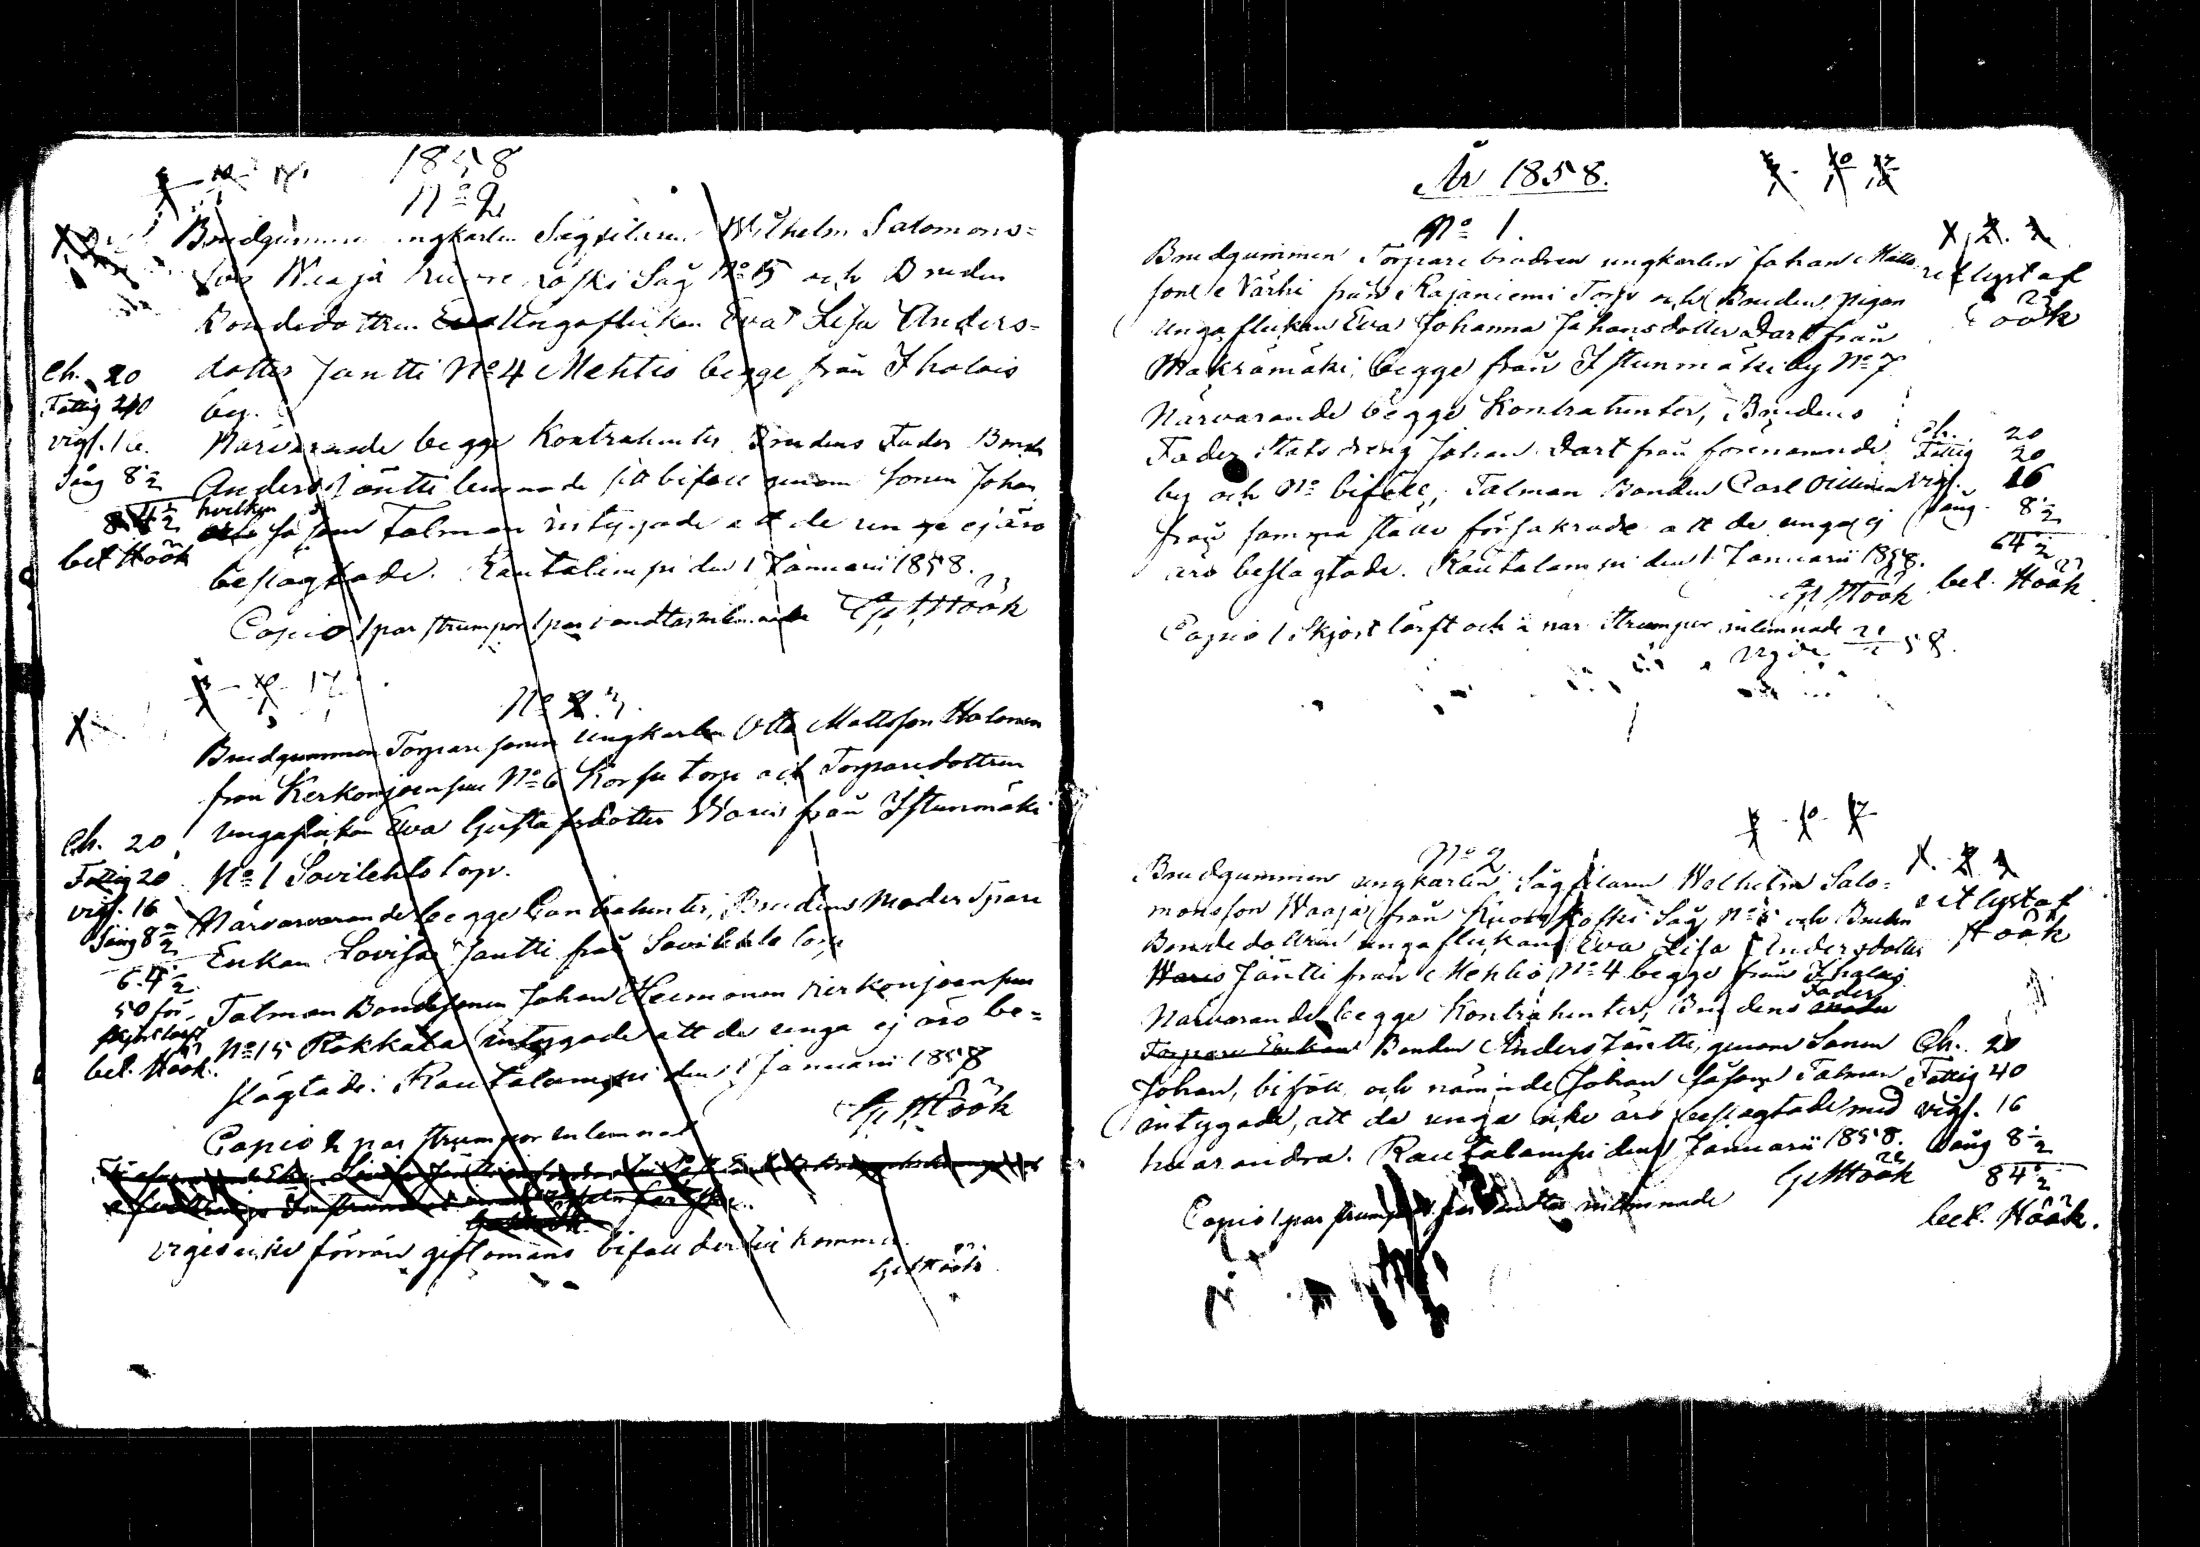 1858
No 2
Brudgummen ungkarlen Sågfilaren Wilhelm Salomons=
son Waaja koski Såg No 15 och Bruden
Bondedottren Ungaflickan Eva Lisa Anders=
dotter Jäntti No 4 Mehtio begge från Ihalais
by.
Närvarande begge Kontrahenter Brudens Fader Bonde
Anders Jäntti lemnade sitt bifall genom sonen Johan
hvilken såsom Talman intygade att de unga ej äro
beslägtade. Rautalampi den 1 Januarii 1858.
Copio 1 par strumpor 1 par vandtar inlemnade G. Höök
Ch. 20
Fattig 40
vigs. 16
Sång 8½
84½
bet Höök
No 3.
Brudgummen Torpare sonen ungkarlen Otto Mattsson Halonen
från Kerkonjoensuu No 6 Korsu torp och Torparedottren
ungaflickan Eva Gustafsdotter Waris från Istunmäki
No 1 Savilehto torp.
Närvarvarande begge Contrahenter, Brudens Moder Tpare
Enkan Lovisa Jäntti från Savilehto torp
Talman Bondesonen Johan Heimonen Kerkonjoensuu
No 15 Rokkala intygade att de unga ej äro be=
slägtade. Rautalampi den 1 Januarii 1858
G. Höök
Copio 2 par strumpor inlemnat
viges icke förrän giftomans bifall dertill kommer.
G. Höök
Ch. 20
Fattig 20
vigs. 16
Sång 8½
64½
50 för
skjortlärft
bet. Höök.
År 1858.
No 1.
Brudgummen Torpare brodren ungkarlen Johan Matts
sone Närhi från Rajaniemi Torp och Bruden pigan
unga flickan Eva Johanna Johansdotter Dart från
Makrämäki, begge från Istunmäki by No 7
Närvarande begge Kontrahenter, Brudens
Fader Statsdreng Johan Dart från förenämnde
by och No bifall, Talman Bonden Carl
från samma ställe försäkrade att de unga ej
äro beslagtade. Rautalampi den 1 Januarii 1858.
G. Höök
Copio 1 Skjortlärft och 1 par Strumpor inlemnade
utlyst af
Höök
Ch. 20
Fattig 20
vigs. 16
Sång 8½
64½
bet. Höök
No 2
Brudgummen ungkarlen Sågfilaren Wilhelm Salo=
monsson Waaja från koski Såg No 5 och Bruden
Bondedottren ungaflickan Eva Lisa Andersdotter
Waris Jäntti från Mehtio No 4 begge från Ihalais
Närvarande begge Kontrahenter, Brudens Fader
Torpare Enkan Bonden Anders Jäntti, genom Sonen
Johan, bifall och nämnde Johan såsom Talman
intygade, att de unga icke äro beslagtade med
hvarandra. Rautalampi den 1 Januarii 1858.
G. Höök
Copio 1 par strumpor 1 par vandtar inlemnade
utlyst af
Höök
Ch. 20
Fattig 40
vigs. 16
Sång 8½
84½
bet. Höök.